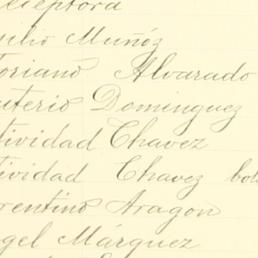 ceptora
Muñóz
toriano Alvarado
uterio Dominguez
tividad Chavez
tividad Chavez bol
rentino Aragon
ngel Márquez